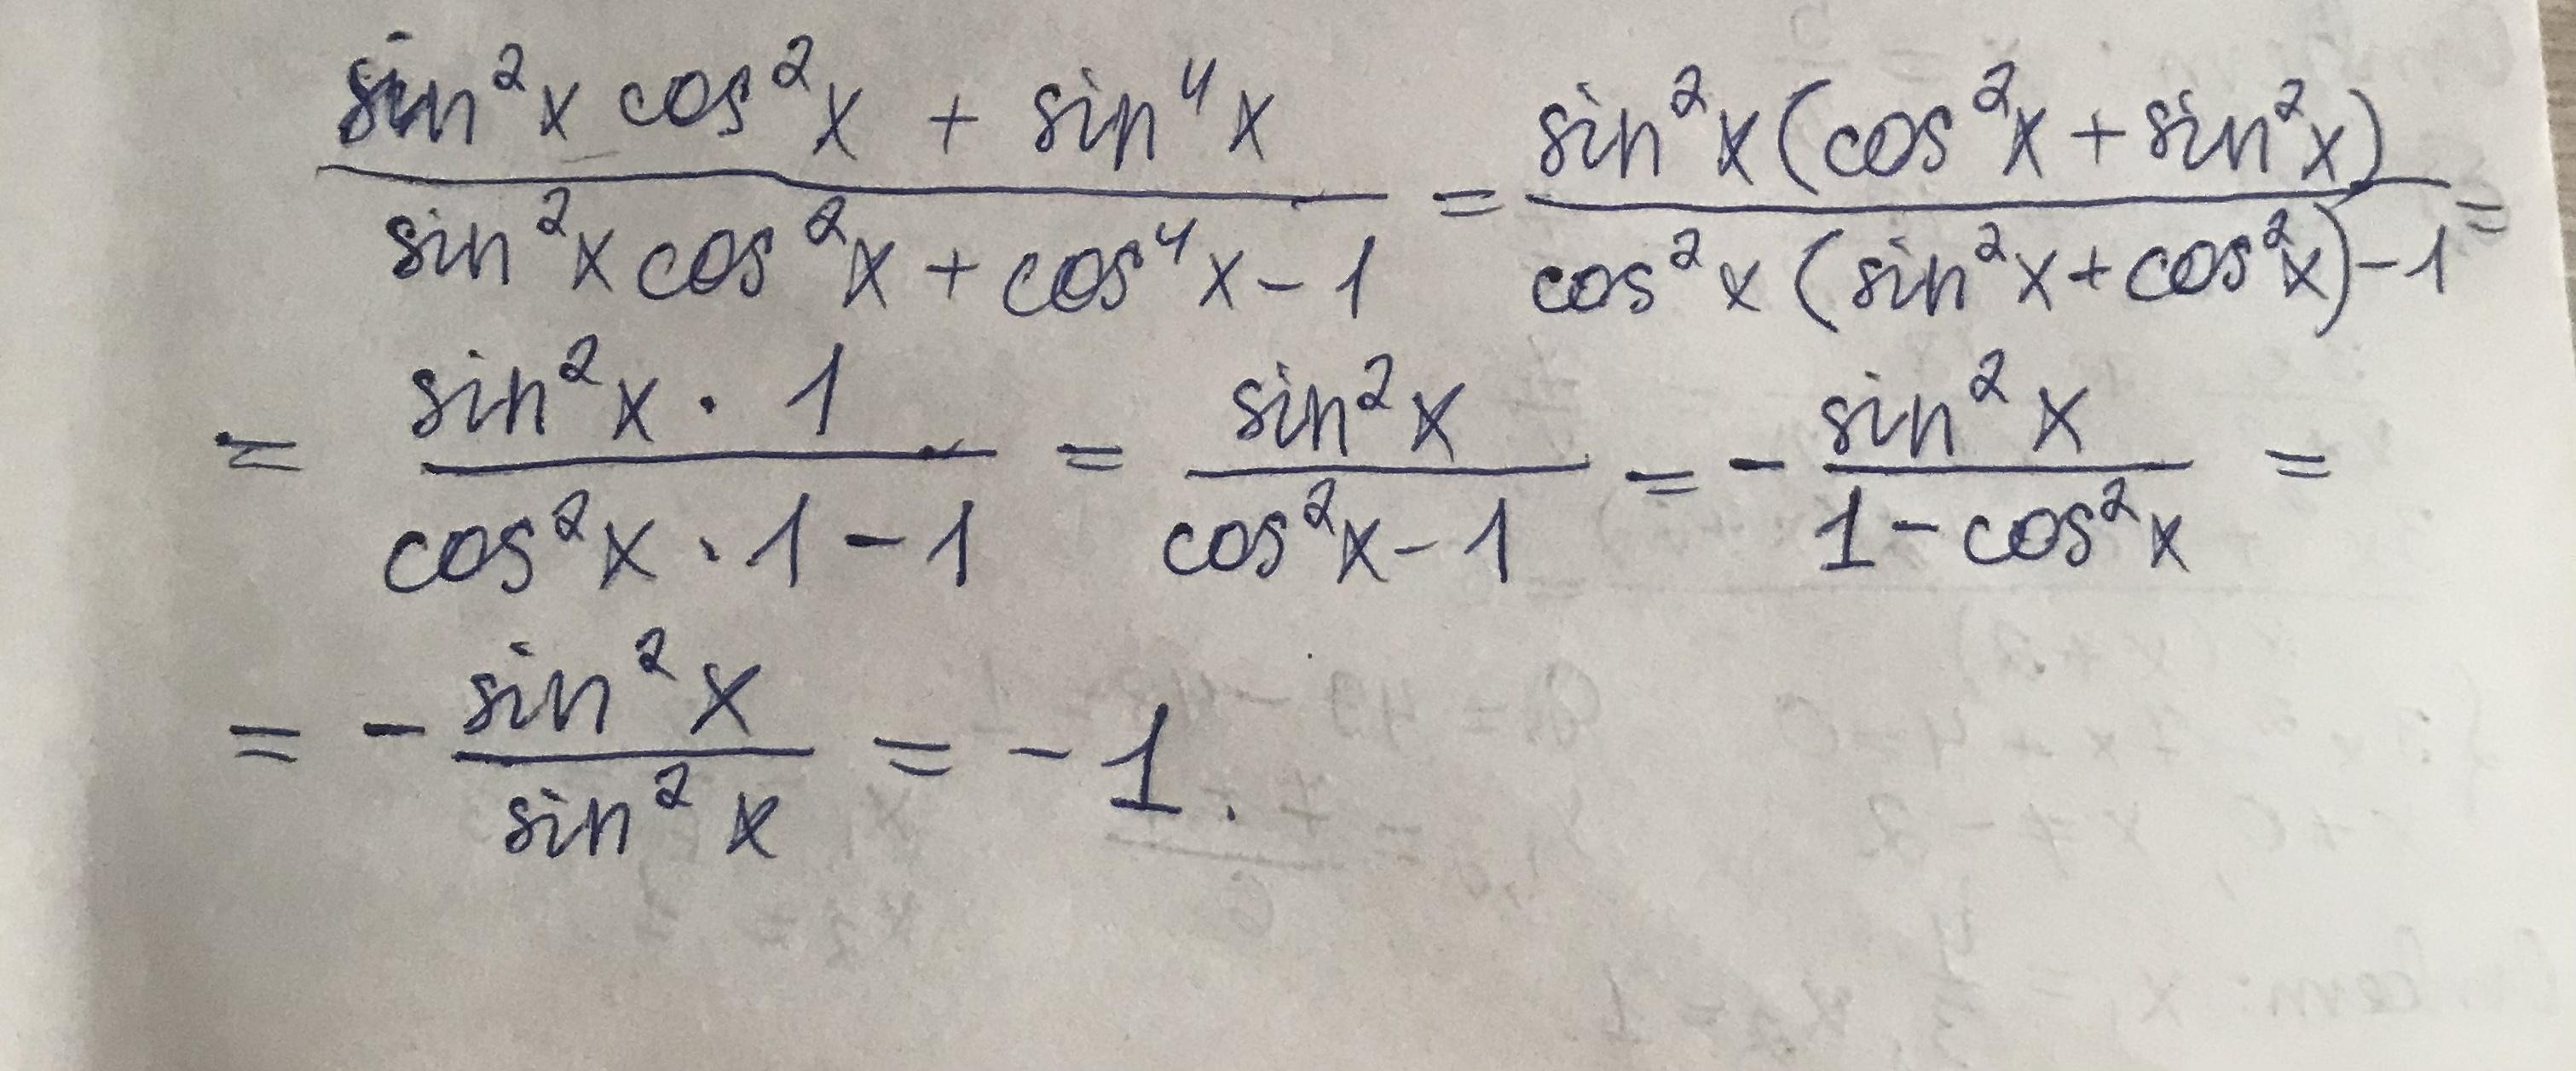 (sin²x cos²x + sin⁴x)/(sin²x cos²x + cos⁴x - 1) = (sin²x(cos²x + sin²x))/(cos²x(sin²x + cos²x) - 1) =
= (sin²x · 1)/(cos²x · 1 - 1) = (sin²x)/(cos²x - 1) = - (sin²x)/(1 - cos²x) =
= - (sin²x)/(sin²x) = - 1.